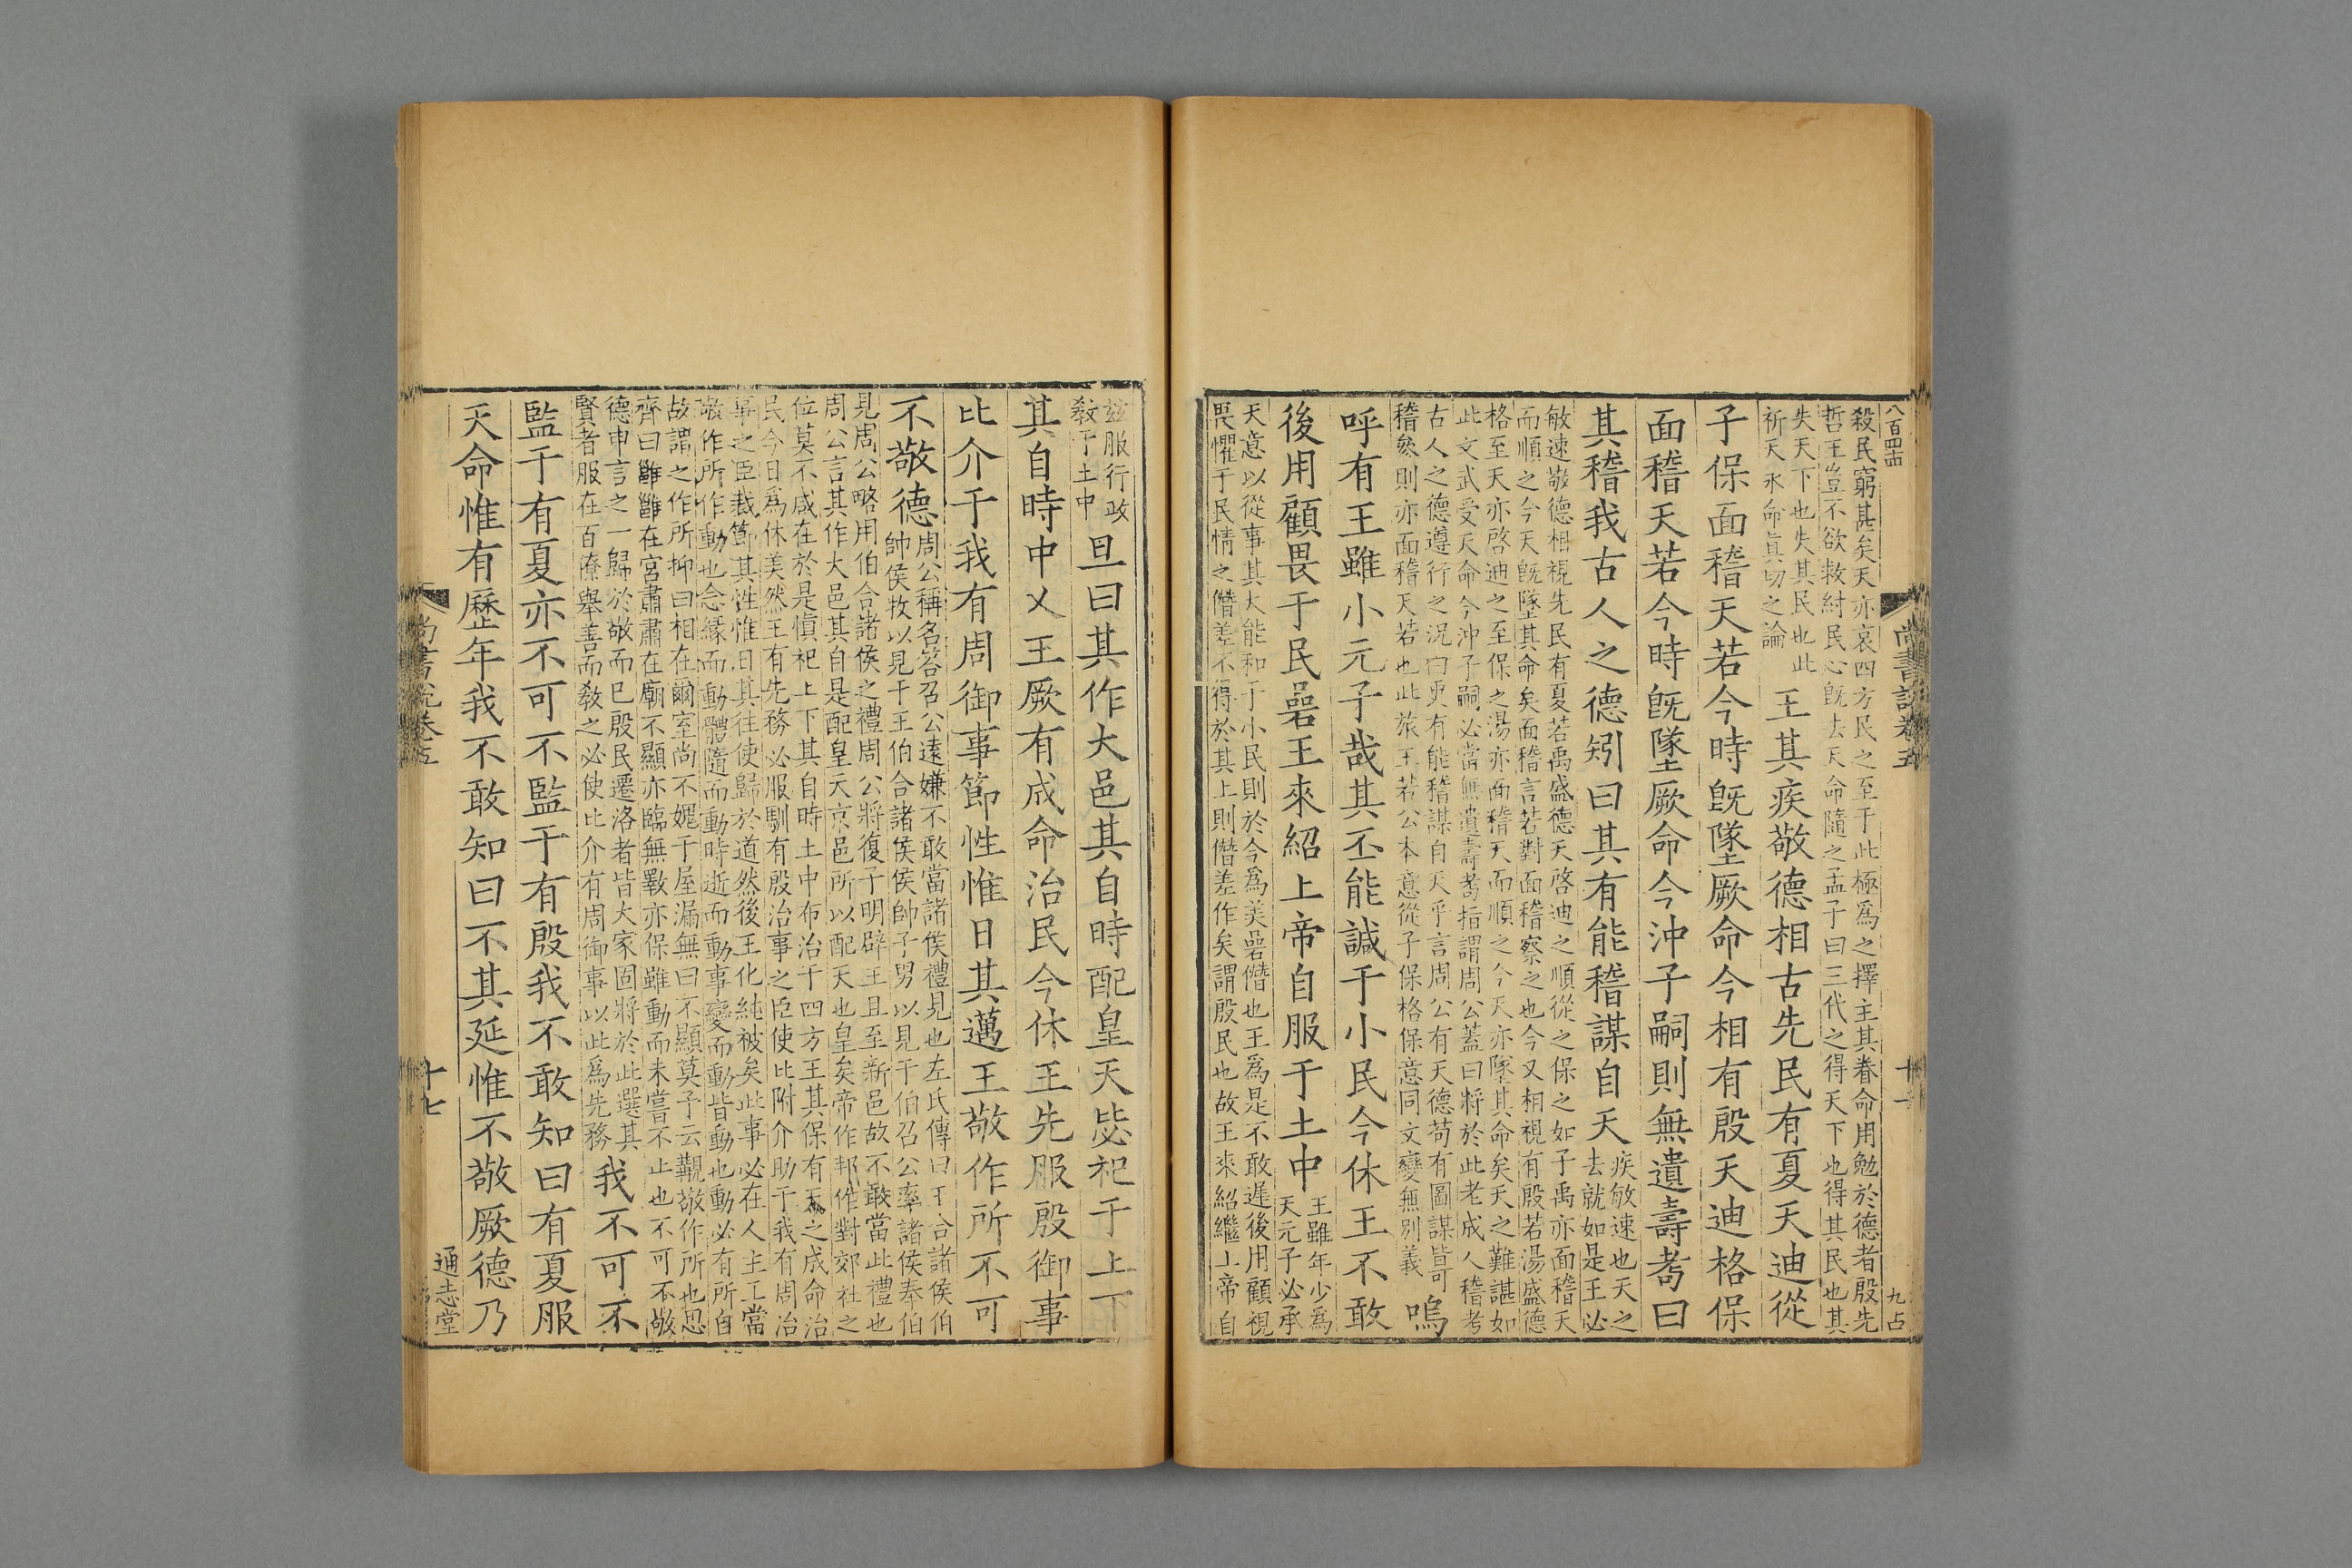 八百四十四
尚書說卷五
十一
九占
殺民窮甚矣天亦哀四方民之至于此極爲之擇主其眷命用勉於德者殷先
哲王豈不欲救紂民心旣去天命隨之孟子曰三代之得天下也得其民也其
失天下也失其民也此
祈天永命眞切之論
王其疾敬德相古先民有夏天迪從
子保面稽天若今時旣墜厥命今相有殷天迪格保
面稽天若今時旣墜厥命今沖子嗣則無遺壽耇曰
其稽我古人之德矧曰其有能稽謀自天
疾敏速也天之
去就如是王必
敏速敬德相視先民有夏若禹盛德天啓迪之順從之保之如子禹亦面稽天
而順之今天旣墜其命矣面稽言若對面稽察之也今又相視有殷若湯盛德
格至天亦啓迪之至保之湯亦面稽天而順之今天亦墜其命矣天之難諶如
此文武受天命今沖子嗣必當無遺壽耇指謂周公蓋曰將於此老成人稽考
古人之德遵行之況曰更有能稽謀自天乎言周公有天德苟有圖謀皆可
稽參則亦面稽天若也此旅王若公本意從子保格保意同文變無别義
嗚
呼有王雖小元子哉其丕能諴于小民今休王不敢
後用顧畏于民碞王來紹上帝自服于土中
王雖年少爲
天元子必承
天意以從事其大能和于小民則於今爲美碞僭也王爲是不敢遲後用顧視
畏懼于民情之僭差不得於其上則僭差作矣謂殷民也故王來紹繼上帝自
兹服行政
教于土中
旦曰其作大邑其自時配皇天毖祀于上下
其自時中乂王厥有成命治民今休王先服殷御事
比介于我有周御事節性惟日其邁王敬作所不可
不敬德
周公稱名答召公遠嫌不敢當諸侯禮見也左氏傳曰王合諸侯伯
帥侯牧以見于王伯合諸侯侯帥子男以見于伯召公率諸侯奉伯
見周公略用伯合諸侯之禮周公將復子明辟王且至新邑故不敢當此禮也
周公言其作大邑其自是配皇天京邑所以配天也皇矣帝作邦作對郊社之
位莫不咸在於是慎祀上下其自時土中布治于四方王其保有天之成命治
民今日爲休美然王有先務必服馴有殷治事之臣使比附介助于我有周治
事之臣裁節其性惟日其往使歸於道然後王化純被矣此事必在人主工當
敬作所作動也念緣而動體隨而動時逝而動事變而動皆動也動必有所自
故謂之作所抑曰相在爾室尚不媿于屋漏無曰不顯莫予云覯敬作所也思
齊曰雝雝在宮肅肅在廟不顯亦臨無斁亦保雖動而未嘗不止也不可不敬
德申言之一歸於敬而已殷民遷洛者皆大家固將於此選其
賢者服在百僚舉善而敎之必使比介有周御事以此爲先務
我不可不
監于有夏亦不可不監于有殷我不敢知曰有夏服
天命惟有歷年我不敢知曰不其延惟不敬厥德乃
尚書說卷五
十七
通志堂